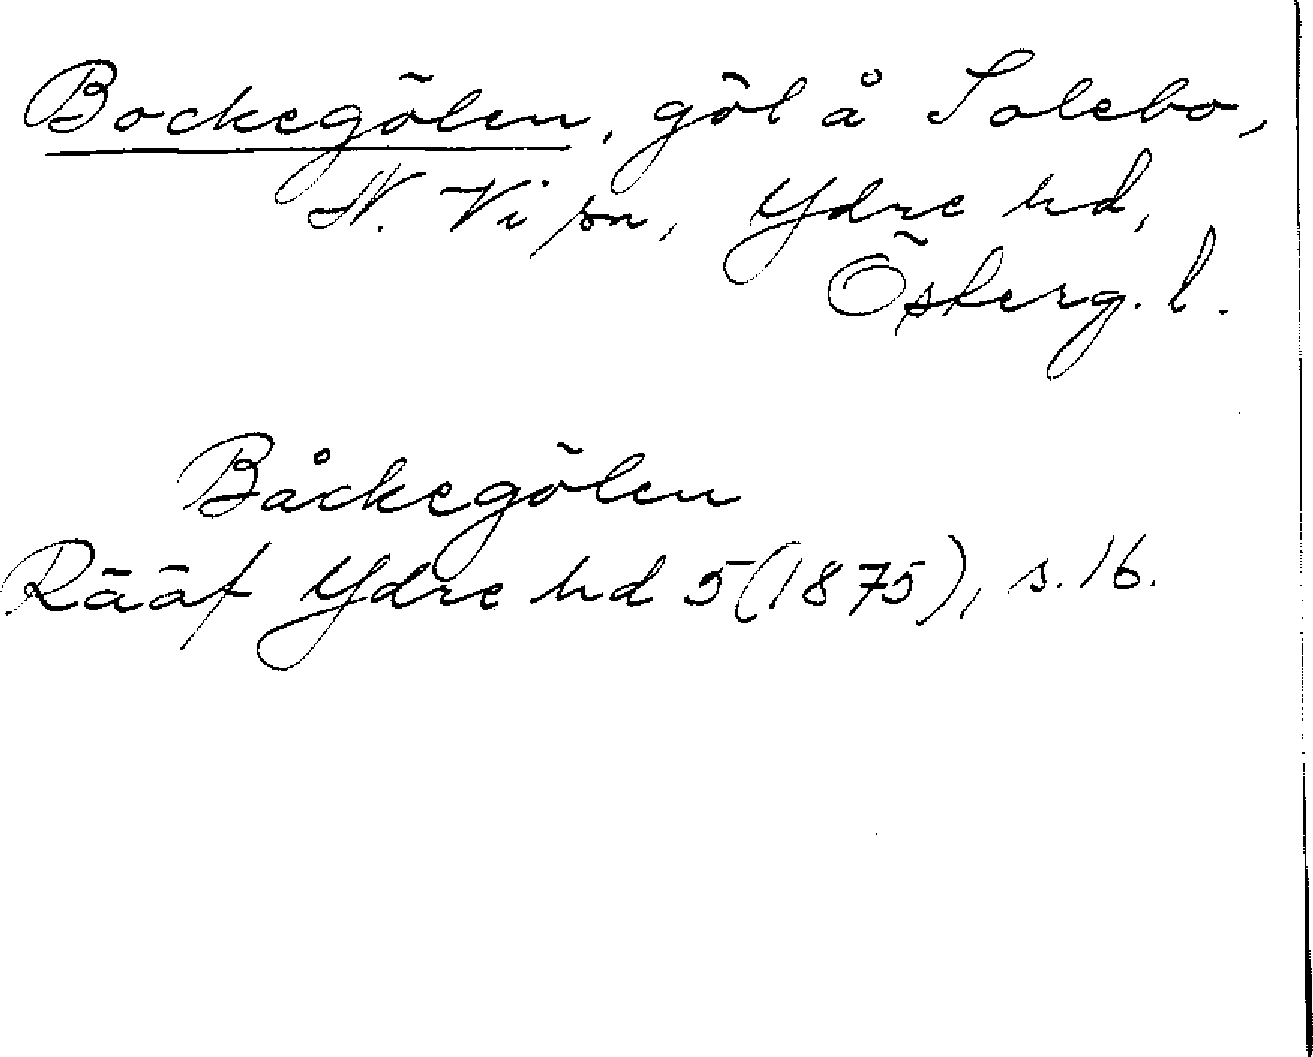 Bockegölen, göl å Solebo,
N. Vi sn, Ydre hd,
Österg. l.
Båckegölen
Rääf Ydre hd 5 (1875), s. 16.